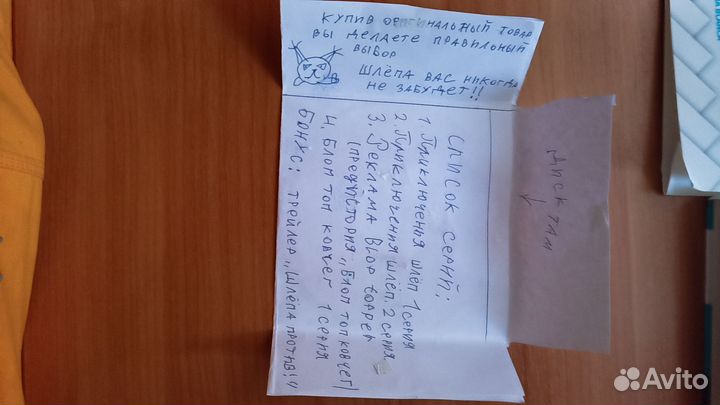 КУПИВ ОРИГИНАЛЬНЫЙ ТОВАР
ВЫ ДЕЛАЕТЕ ПРАВИЛЬНЫЙ
ВЫБОР
ШЛЁПА ВАС НИКОГДА
НЕ ЗАБУДЕТ!!
СПИСОК СЕРИЙ:
1. Приключенья шлёп 1 серия
2. Приключения шлёп. 2 серия
3. Реклама
4. Блоп топ ковчег 1 серия
БОНУС: ТРЕЙЛЕР „ШЛЁПА ПРОТИВ!"
ДИСК ТАМ
↓
Avito